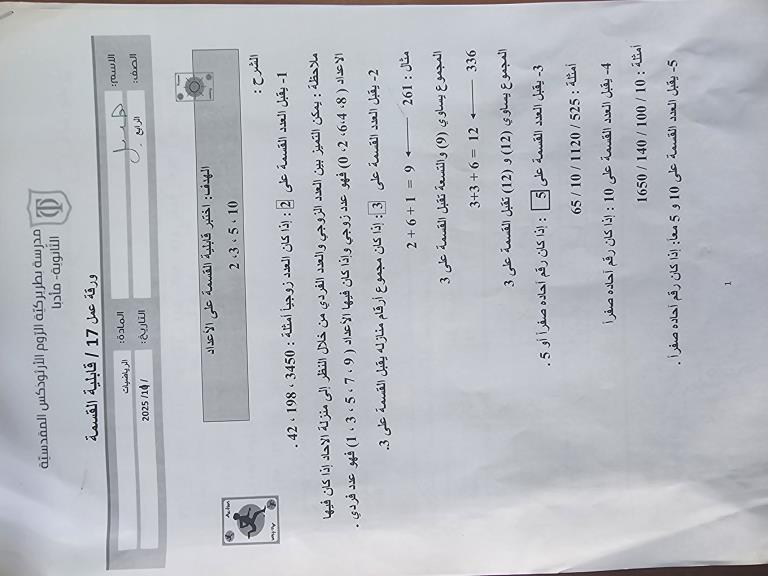 مدرسة بطريركية الروم الأرثوذكس المقدسية
الثانوية - مادبا
ورقة عمل 17 / قابلية القسمة
الاسم:
المادة: الرياضيات
الصف: الرابع
التاريخ: / 11/ 2025
الهدف: اختبر قابلية القسمة على الأعداد
2 ،3 ، 5 ، 10
الشرح :
1- يقبل العدد القسمة على 2 : إذا كان العدد زوجياً أمثلة : 3450 ، 198 ، 42 .
ملاحظة : يمكن التمييز بين العدد الزوجي والعدد الفردي من خلال النظر إلى منزلة الآحاد إذا كان فيها
الأعداد ( 8، 4، 6، 2 ، 0) فهو عدد زوجي وإذا كان فيها الأعداد ( 9 ، 7 ، 5 ، 3 ، 1) فهو عدد فردي .
2- يقبل العدد القسمة على 3 : إذا كان مجموع أرقام منازله يقبل القسمة على 3.
مثال : 261 ← 2 + 6 + 1 = 9
المجموع يساوي (9) والتسعة تقبل القسمة على 3
336 ← 3+3 + 6 = 12
المجموع يساوي (12) و (12) تقبل القسمة على 3
3- يقبل العدد القسمة على 5 : إذا كان رقم آحاده صفراً أو 5 .
أمثلة : 525 / 1120 / 10 / 65
4- يقبل العدد القسمة على 10 : إذا كان رقم آحاده صفراً
أمثلة : 10 / 100 / 140 / 1650
5- يقبل العدد القسمة على 10 و 5 معاً: إذا كان رقم آحاده صفراً .
1